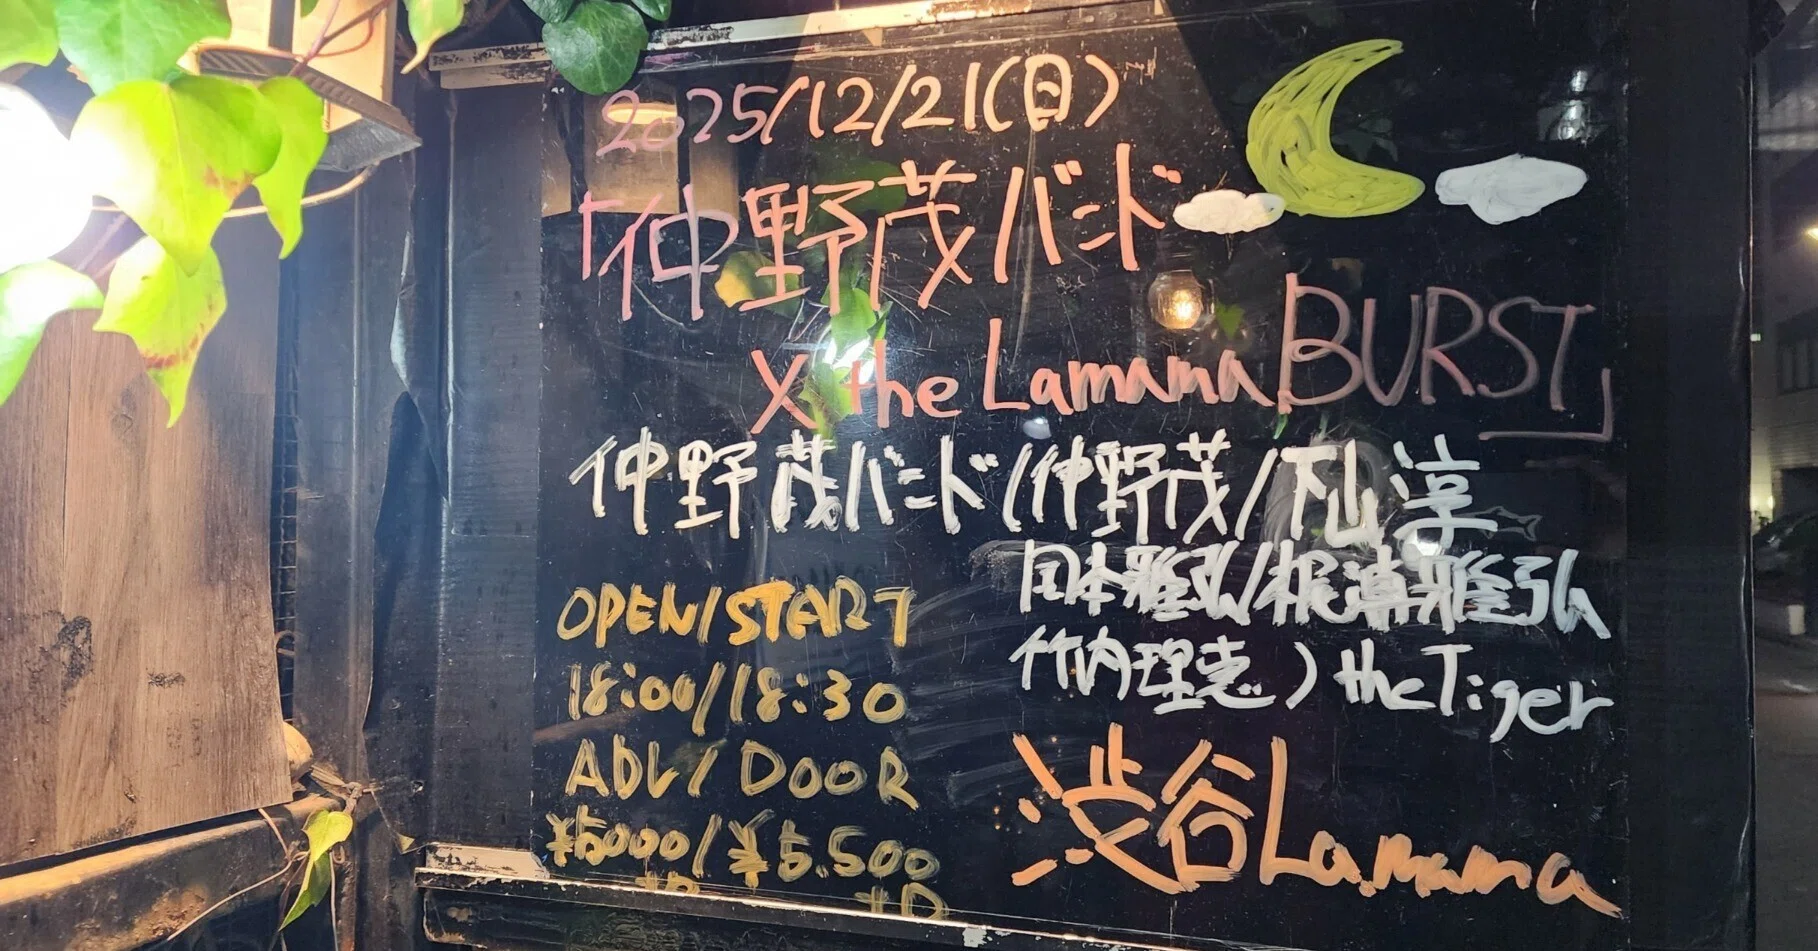 2025/12/21(日)
「仲野茂バンド
X the Lamama BURST」
仲野茂バンド(仲野茂/下山淳
岡本雅弘/梶浦雅弘
竹内理恵) the Tiger
OPEN/START
18:00/18:30
ADV/DOOR
¥5000/¥5.500
+D +D
渋谷La.mama